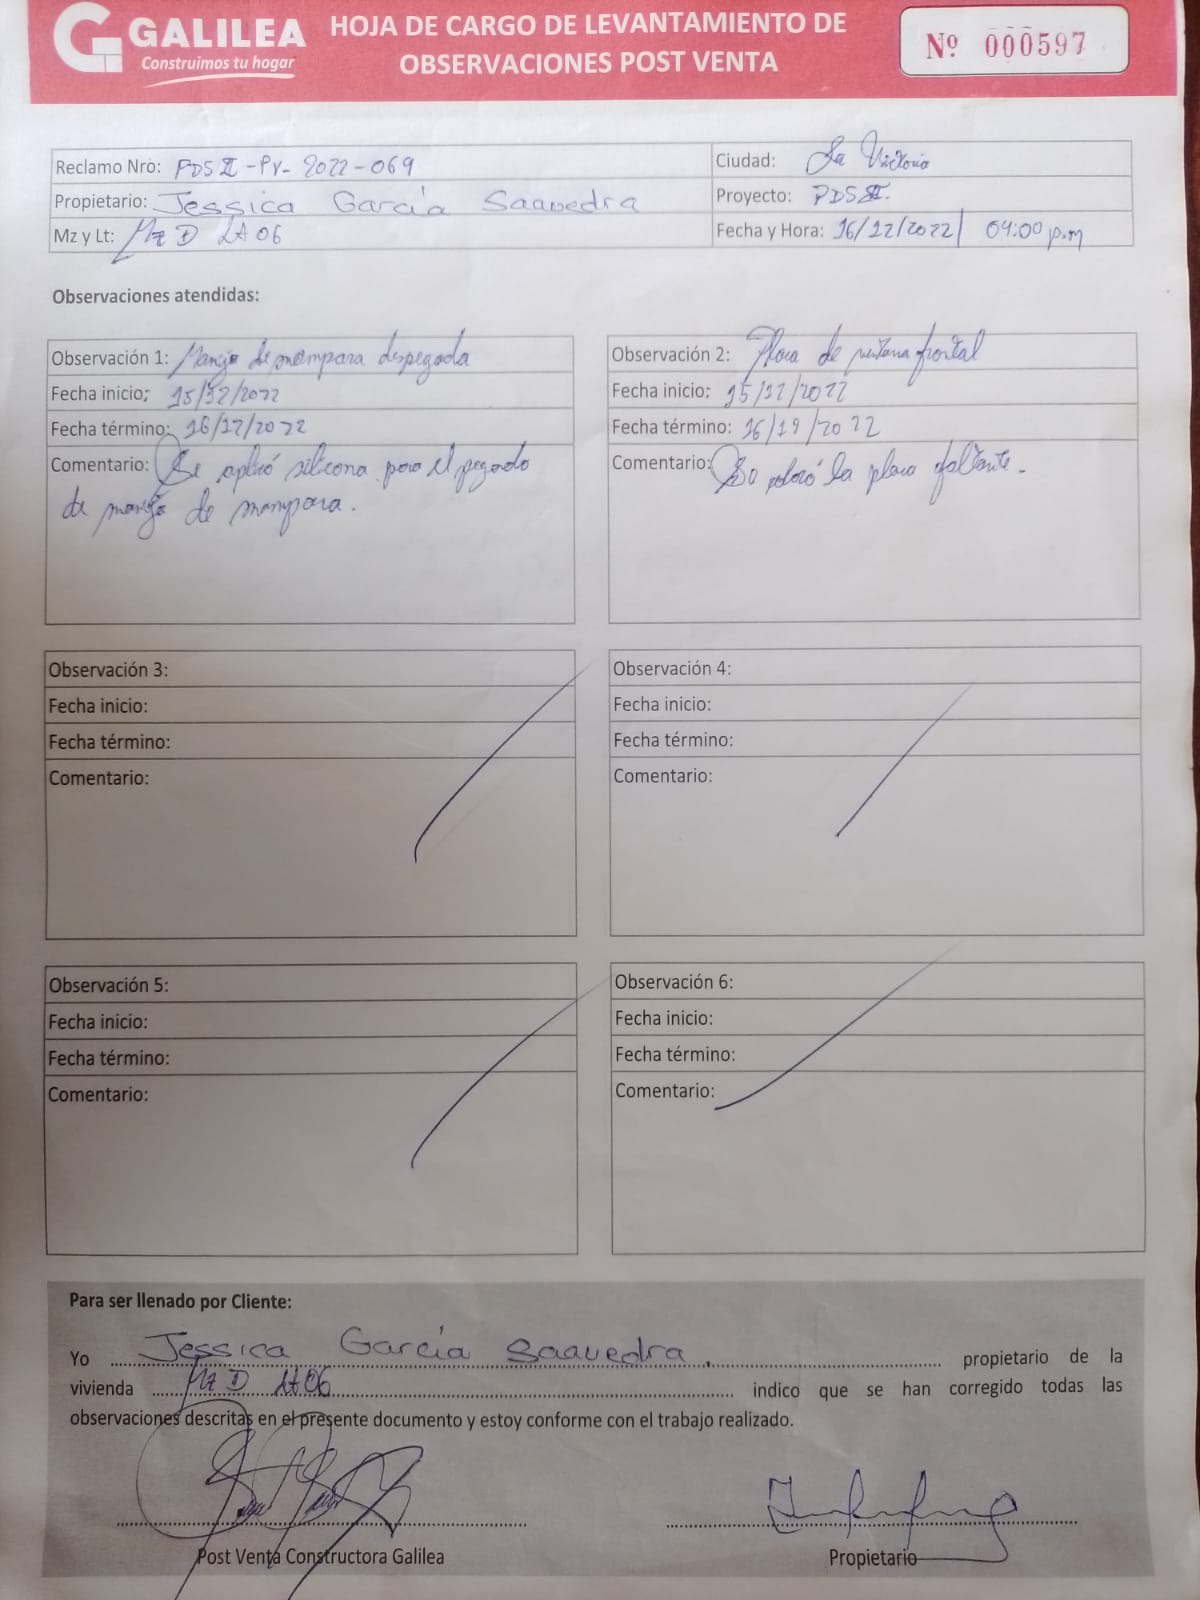 GALILEA
Construimos tu hogar
HOJA DE CARGO DE LEVANTAMIENTO DE
OBSERVACIONES POST VENTA
Nº 000597
Reclamo Nro: PDS II -PV- 2022-069
Ciudad: La Victoria
Propietario: Jessica García Saavedra
Proyecto: PDS II.
Mz y Lt: Mz D Lt 06
Fecha y Hora: 16/12/2022 04:00 p.m
Observaciones atendidas:
Observación 1: Manija de mampara despegada
Fecha inicio: 15/12/2022
Fecha término: 16/12/2022
Comentario: Se aplicó silicona para el pegado
de manija de mampara.
Observación 2: Placa de ventana frontal
Fecha inicio: 15/12/2022
Fecha término: 16/19/2022
Comentario: Se colocó la placa faltante.
Observación 3:
Fecha inicio:
Fecha término:
Comentario:
Observación 4:
Fecha inicio:
Fecha término:
Comentario:
Observación 5:
Fecha inicio:
Fecha término:
Comentario:
Observación 6:
Fecha inicio:
Fecha término:
Comentario:
Para ser llenado por Cliente:
Yo Jessica García Saavedra. propietario de la
vivienda Mz D Lt 06 indico que se han corregido todas las
observaciones descritas en el presente documento y estoy conforme con el trabajo realizado.
Post Venta Constructora Galilea
Propietario